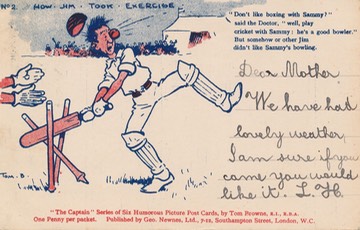 Nº2. HOW JIM TOOK EXERCISE
"Don't like boxing with Sammy?"
said the Doctor, "well, play
cricket with Sammy: he's a good bowler."
But somehow or other Jim
didn't like Sammy's bowling.
Dear Mother.
We have had
lovely weather,
I am sure if you
came you would
like it. L.H.
TOM. B.
"The Captain" Series of Six Humorous Picture Post Cards, by Tom Browne, R.I., R.B.A.
One Penny per packet. Published by Geo. Newnes, Ltd., 7-12, Southampton Street, London, W.C.